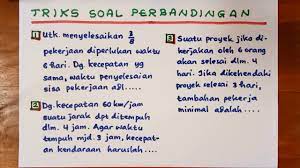 TRIKS SOAL PERBANDINGAN
1 Utk. menyelesaikan 3/8
pekerjaan diperlukan waktu
6 hari. Dg. kecepatan yg
sama, waktu penyelesaian
sisa pekerjaan adl....
2 Dg. kecepatan 60 km/jam
suatu jarak dpt ditempuh
dlm. 4 jam. Agar waktu
tempuh mjd. 3 jam, kecepat-
an kendaraan haruslah....
3 Suatu proyek jika di-
kerjakan oleh 6 orang
akan selesai dlm. 4
hari. Jika dikehendaki
proyek selesai 3 hari,
tambahan pekerja
minimal adalah....